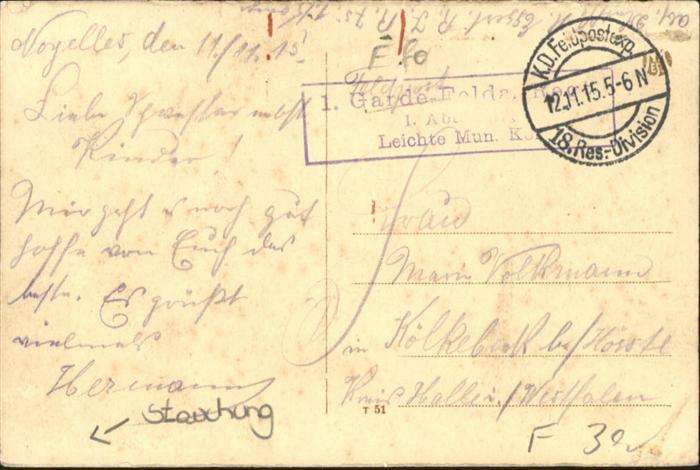 Noyelles, den 11./11.15.
Liebe Schwester nebst
Kinder!
Mir geht es noch gut
hoffe von Euch das
beste. Es grüßt
vielmals
Hermann
Stauchung
F 60
Feldpost
1. Garde-Felda.
1. Ab
Leichte Mun. K
K.D. Feldpostexp.
12.11.15.5-6 N
18. Res.-Division
Frau
Marie Volkmann
in Kölkebeck bei Hörste
Kreis Halle i./Westfalen
T 51
F 30